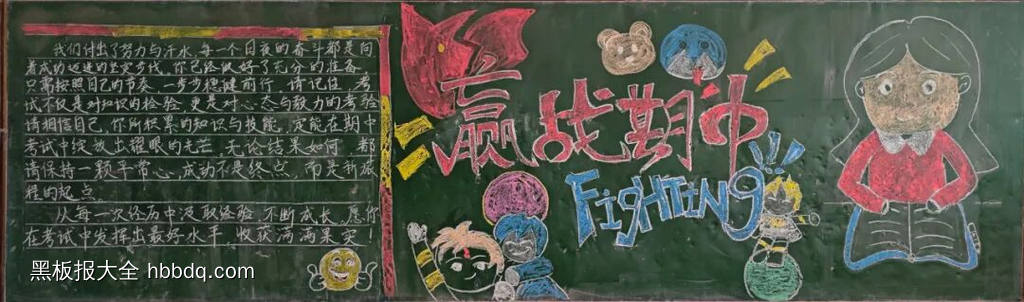 我们付出了努力与汗水,每一个日夜的奋斗都是向
着成功迈进的坚实步伐,你已经做好了充分的准备
只需按照自己的节奏,一步步稳健前行,请记住,考
试不仅是对知识的检验,更是对心态与毅力的考验
请相信自己,你所积累的知识与技能,定能在期中
考试中绽放出耀眼的光芒,无论结果如何,都
请保持一颗平常心,成功不是终点,而是新旅
程的起点.
从每一次经历中汲取经验,不断成长,愿你
在考试中发挥出最好水平,收获满满果实!
赢战期中
FIGHTING!!!
黑板报大全 hbbdq.com